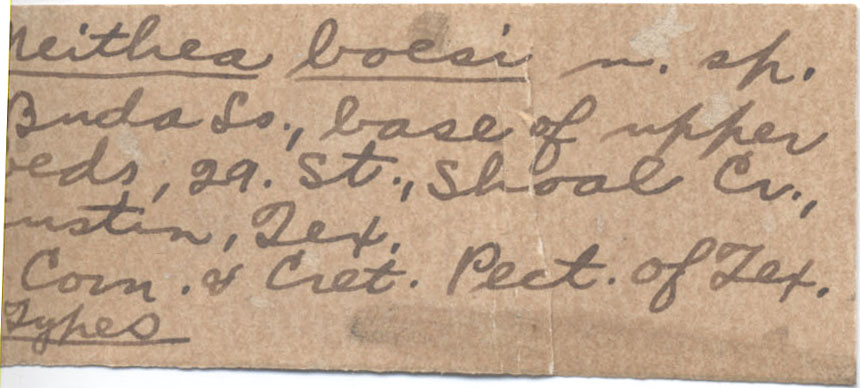 Neithea boesi n. sp.
Buda Ls., base of upper
beds, 29. St., Shoal Cr.,
ustin, Tex.
Com. & Cret. Pect. of Tex.
Types